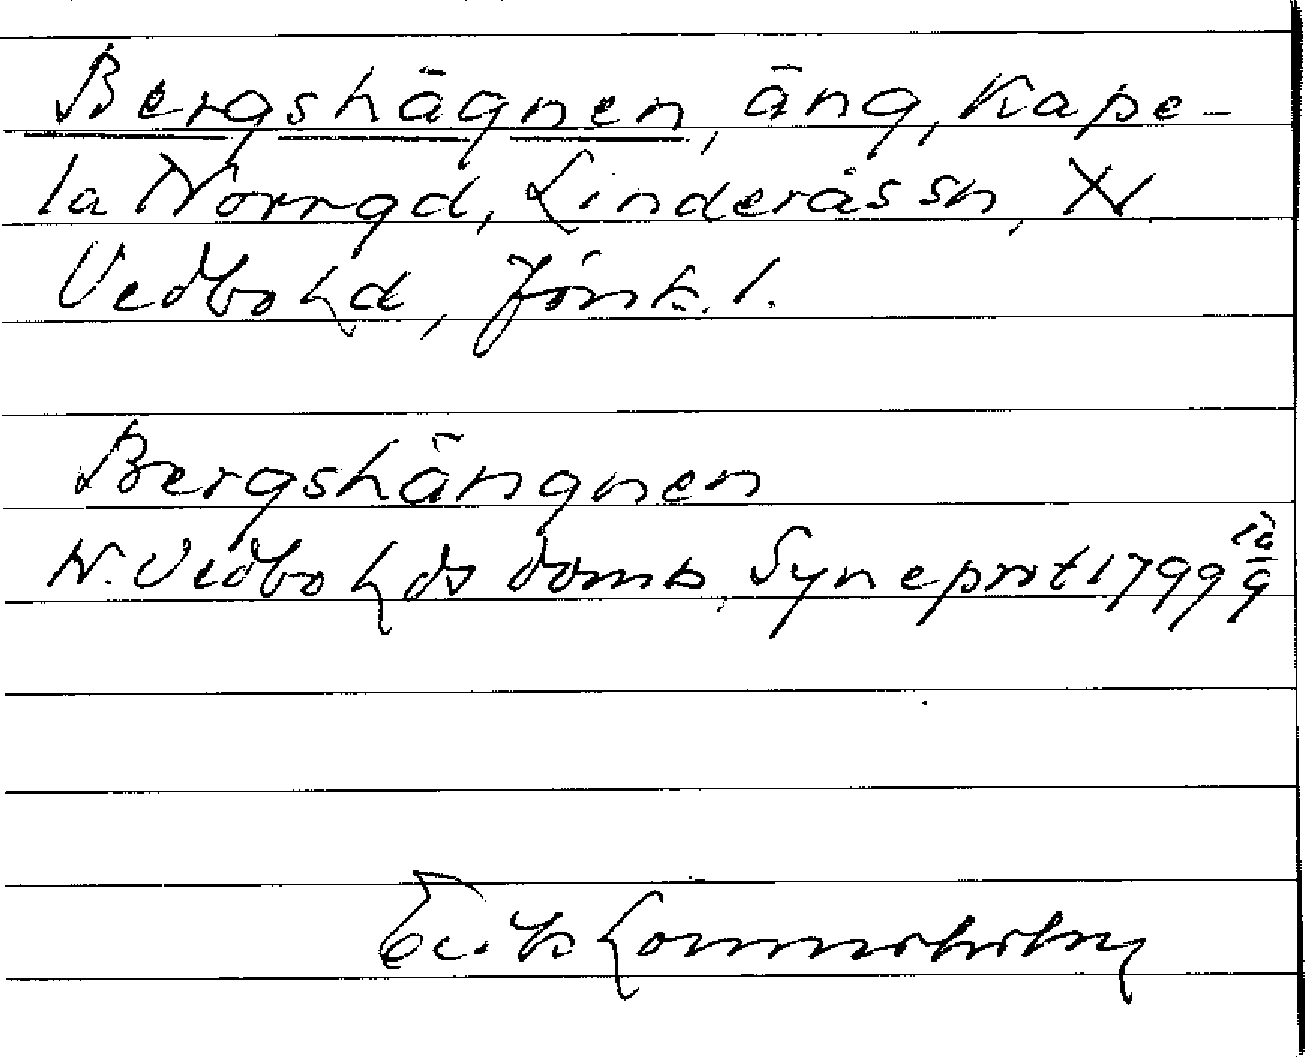 Bergshägnen, äng, Kape-
la Norrgd, Linderås sn, N.
Vedbo hd, Jönk. l.
Bergshängnen
N. Vedbo hds domb, Syneprot 1799
Erik